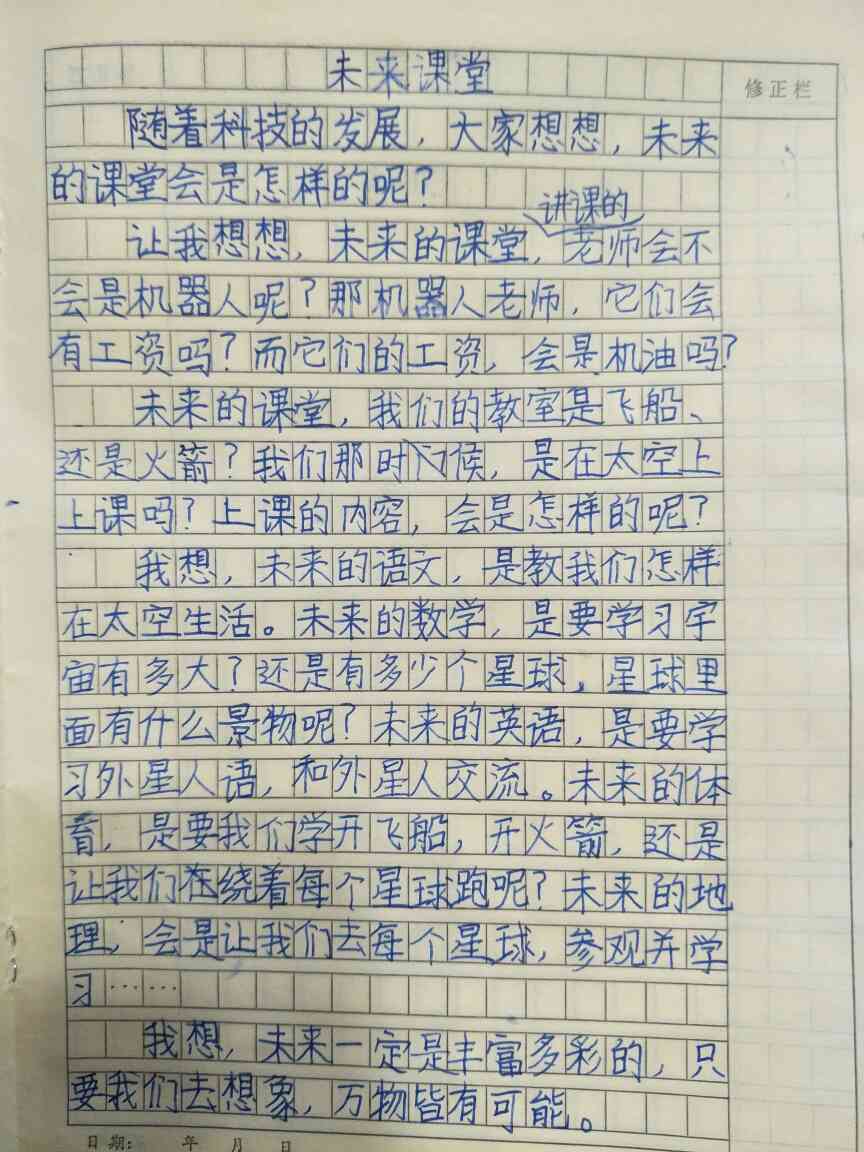 未来课堂
修正栏
随着科技的发展，大家想想，未来
的课堂会是怎样的呢？
讲课的
让我想想，未来的课堂，老师会不
会是机器人呢？那机器人老师，它们会
有工资吗？而它们的工资，会是机油吗？
未来的课堂，我们的教室是飞船、
还是火箭？我们那时候，是在太空上
上课吗？上课的内容，会是怎样的呢？
我想，未来的语文，是教我们怎样
在太空生活。未来的数学，是要学习宇
宙有多大？还是有多少个星球，星球里
面有什么景物呢？未来的英语，是要学
习外星人语，和外星人交流。未来的体
育，是要我们学开飞船，开火箭，还是
让我们在绕着每个星球跑呢？未来的地
理，会是让我们去每个星球，参观并学
习……
我想，未来一定是丰富多彩的，只
要我们去想象，万物皆有可能。
日期：　年　月　日